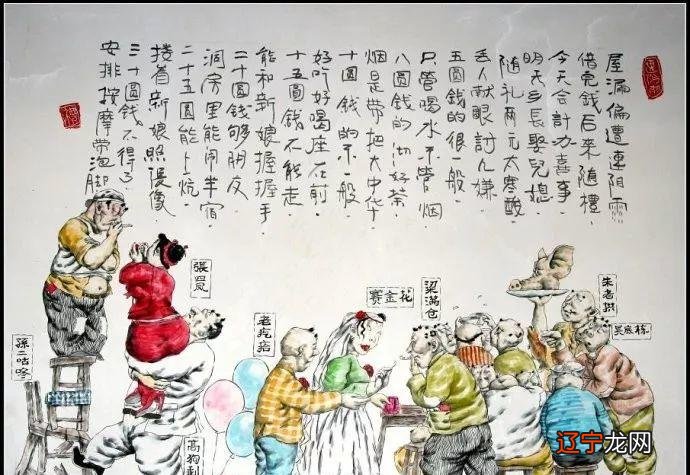 屋漏偏遭連阴雨
借完錢后来随禮
今天会計办喜事
明天乡長娶兒媳
随礼两元太寒酸
丢人献眼討人嫌
五圓錢的很一般
只管喝水不管烟
八圓钱的沏好茶
烟是带把大中华
十圓钱的不一般
好听好喝座在前
十五圓钱不能走
能和新娘握握手
二十圓钱够朋友
洞房里能闹半宿
二十五圓能上炕
搂着新娘照像
三十圓钱不得了
安排按摩带泡脚
朱老拱
梁满仓
賽金花
老疙瘩
張凤
高狗剩
孫二咕咚
辽宁龙网